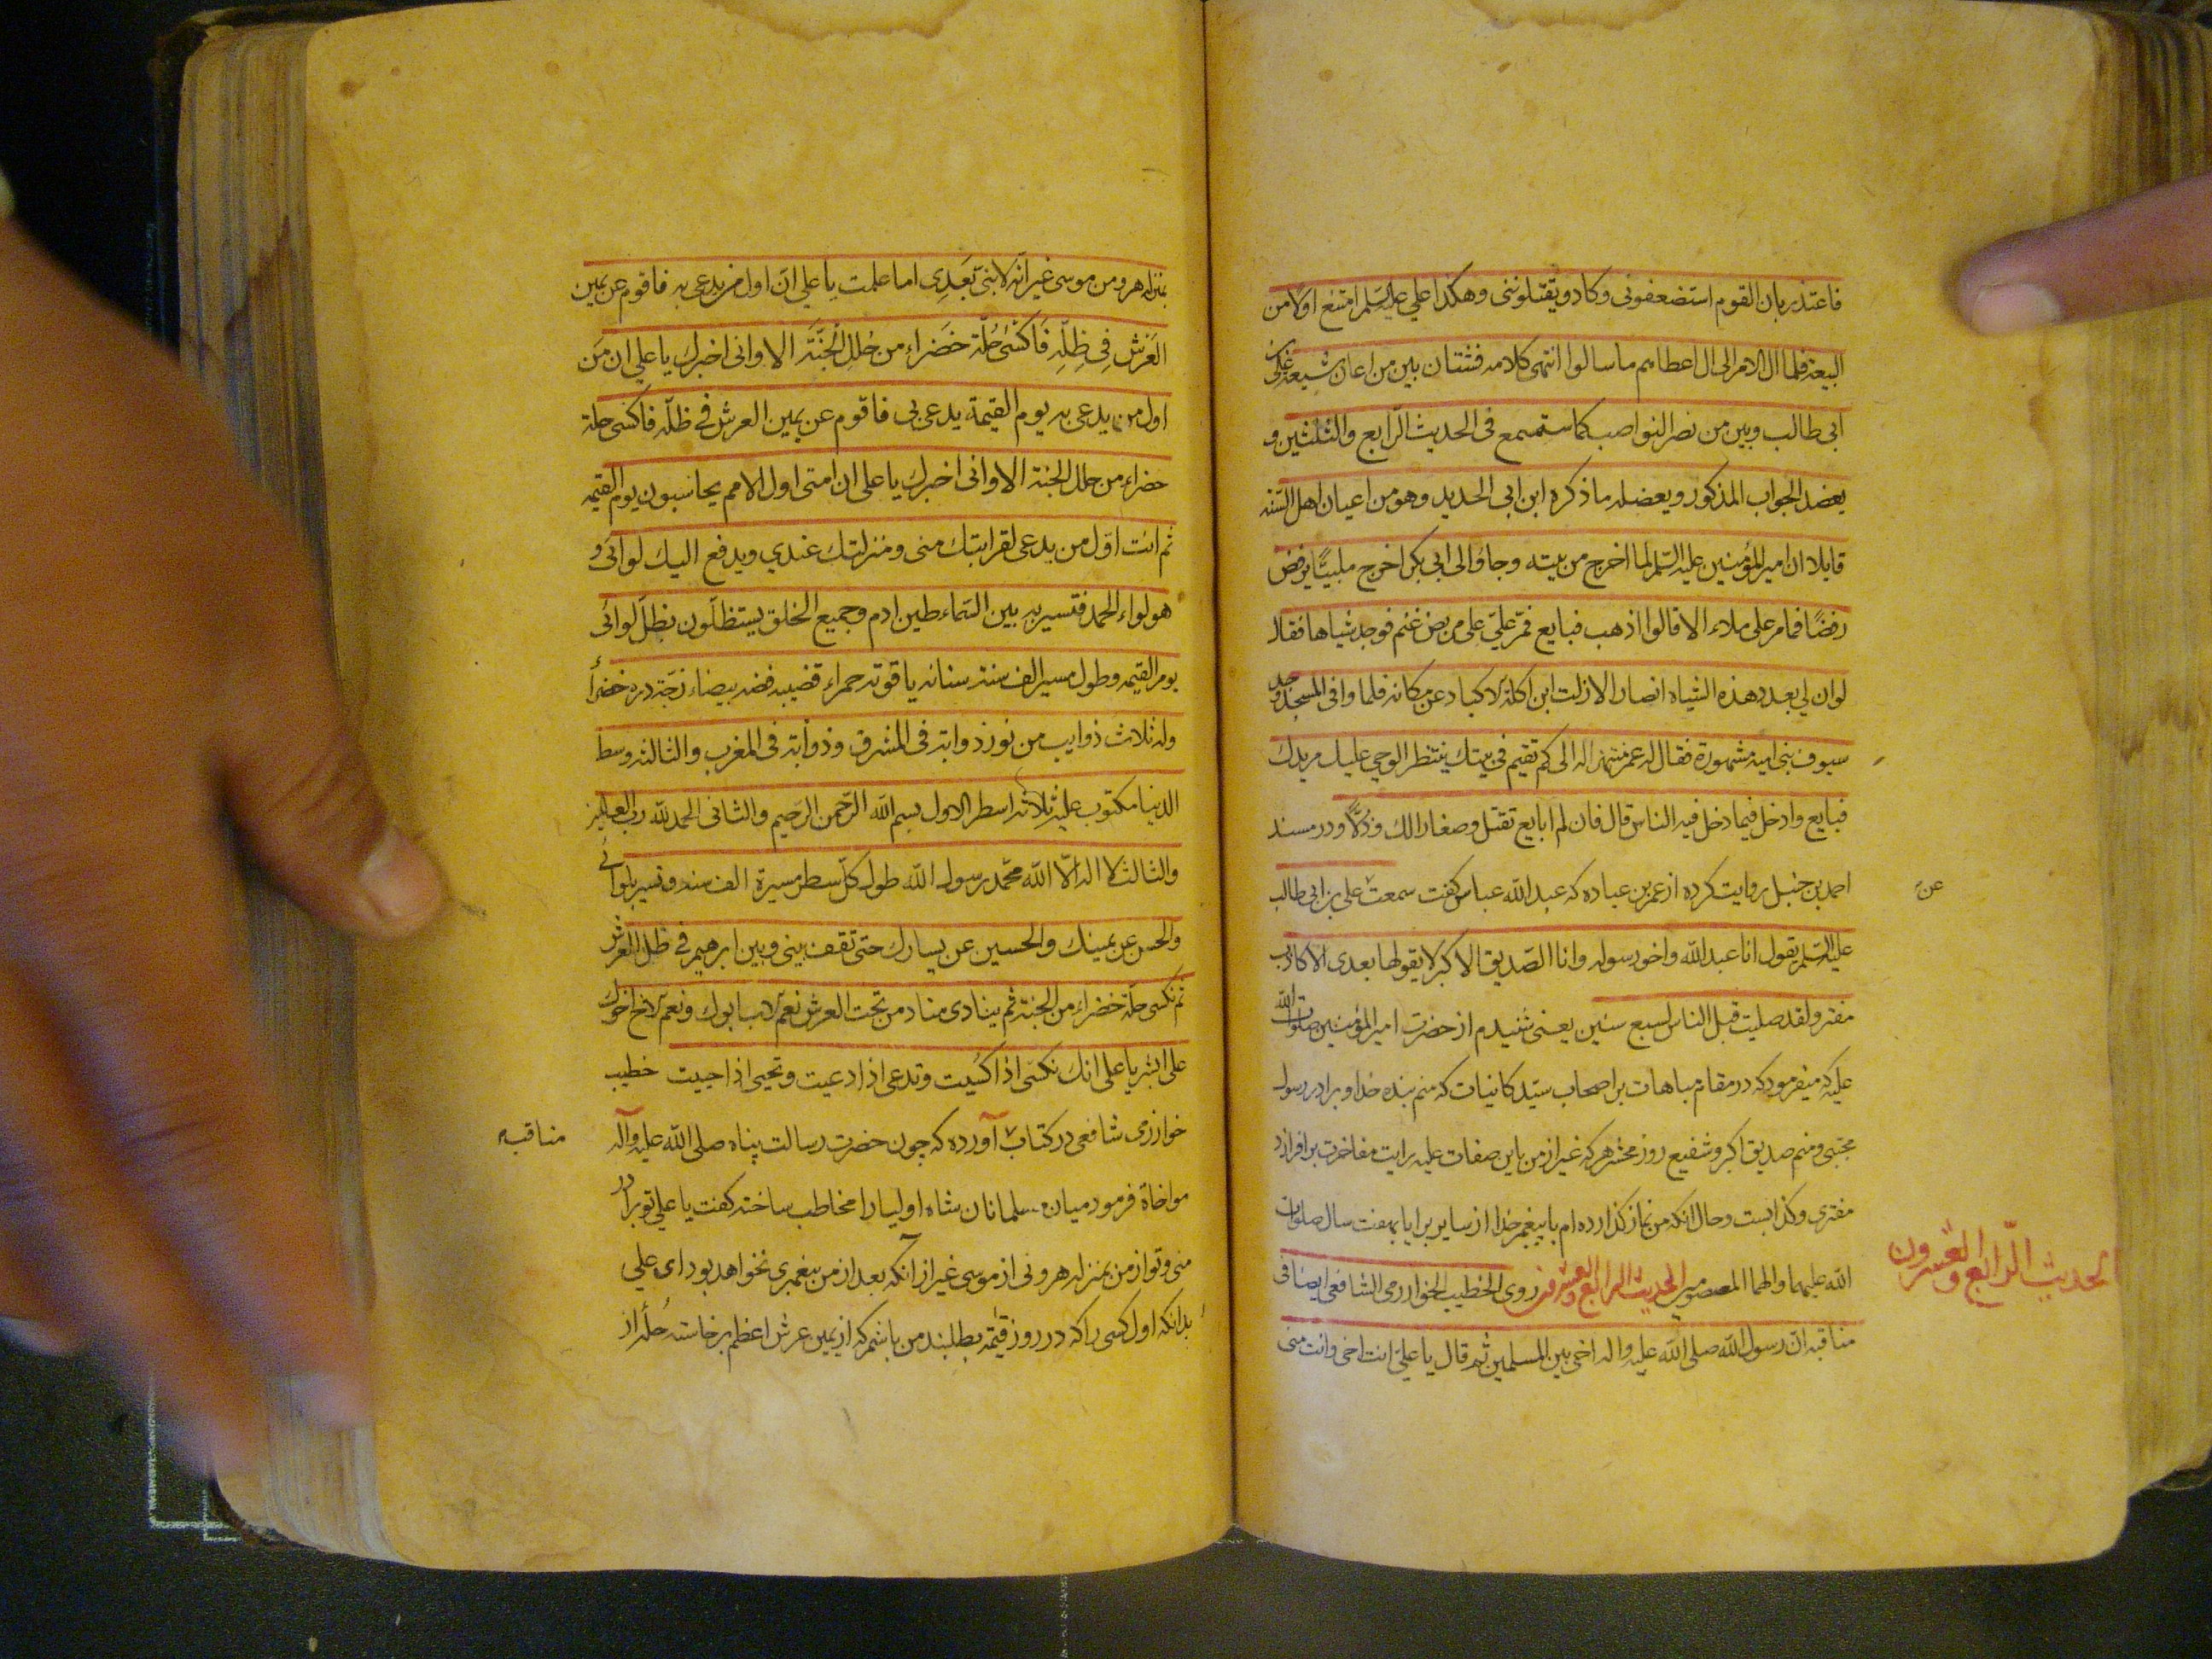 فاعتذر بان القوم استضعفونى وكادو يقتلوننى وهكذا على عليه السلم امتنع اولا من
البيعة فلما ال الامر الى ال اعطاهم ما سالوا انتهى كلامه فشتان بين من اعان شيعة على بن
ابى طالب وبين من نصر النواصب كما ستسمع فى الحديث الرابع والثلثين و
يعضد الجواب المذكور ويعضله ما ذكره ابن ابى الحديد وهو من اعيان اهل السنه
قايلا ان امير المؤمنين عليه السلم لما اخرج من بيته وجاؤا الى ابى بكر اخرج ملببًا يرفض
رفضًا فما مر على ملاء الا قالوا اذهب فبايع فمر علىّ على مربض غنم فوجد شياها فقال
لو ان لى بعدد هذه الشياه انصار الازلت ابن اكلة الاكباد عن مكانه فلما وافى المسجد وجد
سيوف بنى اميه مشهورة فقال له عمر الى كم تقيم فى بيتك ينتظر الوحى عليك مر يدك
فبايع وادخل فيما دخل فيه الناس قال فان لم ابايع تقتل وصغارا لك وذلًّا ودر مسند
احمد بن حنبل روايت كرده از عمر بن عباده كه عبد الله عباس كفت سمعت على بن ابى طالب
عليه السلم يقول انا عبد الله واخو رسوله وانا الصديق الاكبر لا يقولها بعدى الا كاذب
مفتر ولقد صليت قبل الناس لسبع سنين يعنى شنيدم از حضرت امير المؤمنين صلوات الله
عليه كه ميفرمود كه در مقام مباهات بر اصحاب سيد كاينات كه منم بنده خدا وبرادر رسول
مجتبى ومنم صديق اكبر وشفيع روز محشر هر كه غير از من باين صفات عليه رايت مفاخرت بر افرازد
مفترى وكذابست وحال انكه من نماز كذارده ام با پيغمبر خدا از ساير برايا بهفت سال صلوات
الله عليهما والهما المعصومين الحديث الرابع والعشرون روى الخطيب الخوارزمى الشافعى ايضا فى
مناقبه ان رسول الله صلى الله عليه واله اخى بين المسلمين ثم قال يا على انت اخى وانت منى
عن
الحديث الرّابع والعشرون
بمنزله هرون من موسى غير انه لا نبىّ بَعَدِى اما علمت يا على ان اول من يدعى به فاقوم عن يمين
العَرْش فِى ظِلِّهِ فَاكْسَى حُلّة خَضراء من حُللِ الْجَنَّة الا وانى اخبرك يا على ان مَن
اول من يدعى به يوم القيمة يدعى بى فاقوم عن يمين العرش فى ظلّه فاكسى حلة
خضراء من حلل الجنة الا وانى اخبرك يا على ان امتى اول الامم يحاسبون يوم القيمه
ثم انت اوّل من يدعى لقرابتك منى ومنزلتك عندى ويدفع اليك لوائى و
هو لواء الحمد فتسير به بين السّماءطين ادم وجميع الخلق يستظلّون بظلّ لوائى
يوم القيمه وطوله مسير الف سنة سنانه ياقوته حمراء قضيبه فضه بيضاء زجّه دره خضرأ
وله ثلاث ذوايب من نور ذوابه فى المشرق وذوابه فى المغرب والثالثه وسط
الدنيا مكتوب عليه ثلاثه اسطر الاول بسم الله الرّحمن الرّحيم والثانى الحمد لله رب العالمين
والثالث لا اله الّا الله محمّد رسول الله طول كلّ سطر مسيرة الف سنه وتسير بلوائى
والحسن عن يمينك والحسين عن يسارك حتى تقف بينى وبين ابرهيم فى ظل العرش
ثم تكسى حلّة خضراء من الجنة ثم ينادى مناد من تحت العرش نعم الاب ابوك ونعم الاخ اخوك
على ابشر يا على انك تكسى اذا كُسيت وتدعى اذا دعيت وتحيى اذا حييت خطيب
خوارزمى شافعى در كتاب آورده كه چون حضرت رسالت پناه صلى الله عليه وآله
مواخاة فرمود ميان مسلمانان شاه اوليا را مخاطب ساخته كفت يا على تو برادر
منى وتو از من بمنزله هرونى از موسى غير از آنكه بعد از من پيغمبرى نخواهد بود اى على
بدانكه اول كسى را كه در روز قيمة بطلبند من باشم كه از يمين عرش اعظم برخاسته حُلّه از
مناقب